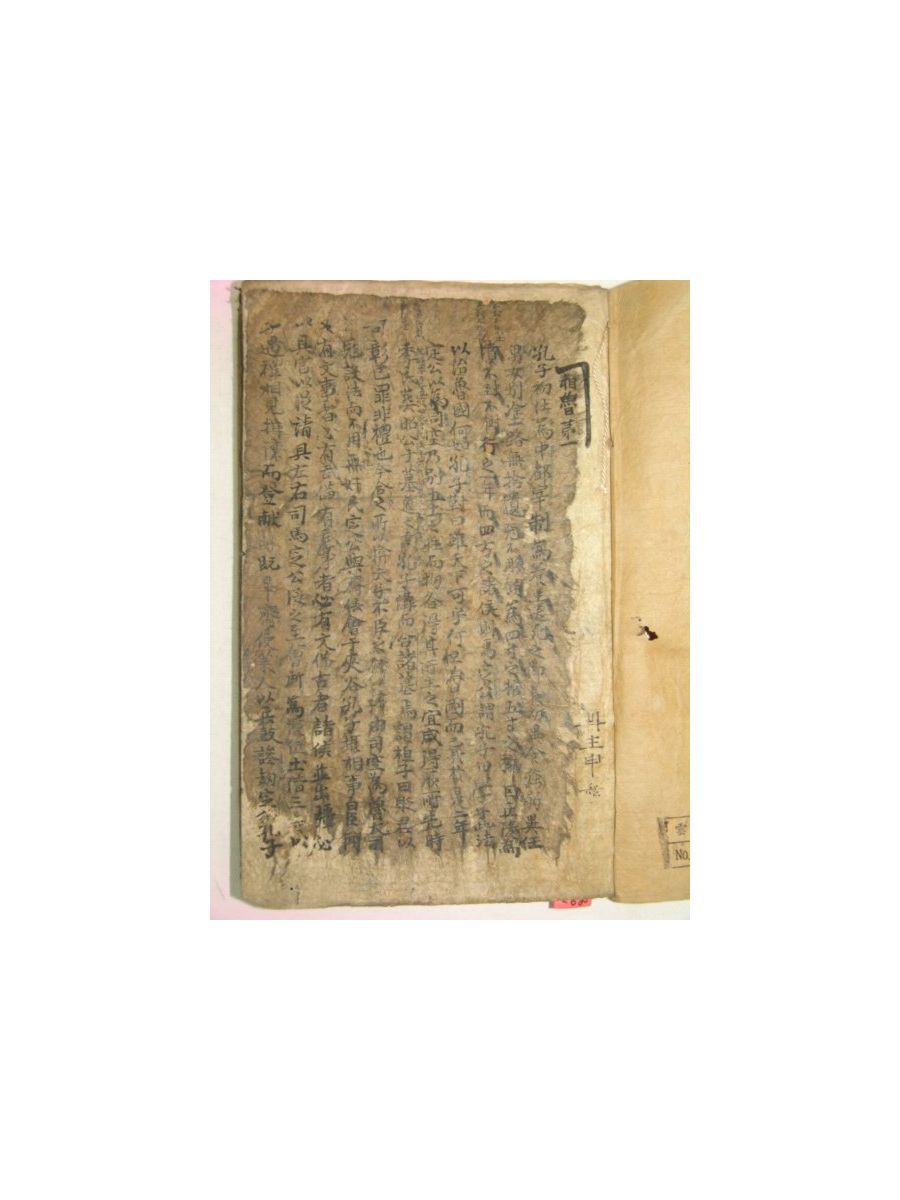 相魯第一
孔子初仕爲中都宰制爲養生送死之節長幼異食强弱異任
男女別塗路無拾遺器不雕僞爲四寸之棺五寸之槨因丘陵爲
不封不樹行之一年而四方之諸侯則焉定公謂孔子曰學子此法
以治魯國何如孔子對曰雖天下可乎何但魯國而已哉於是二年
定公以爲司空乃別五土之性而物各得其所生之宜咸得厥所先時
季氏葬昭公于墓道之南孔子溝而合諸墓焉謂桓子曰貶君以
彰己罪非禮也今合之所以揜夫子不臣之 由司空爲魯大司
寇設法而不用無奸民定公與齊侯會于夾谷孔子攝相事曰臣聞
有文事者必有武備有武事者必有文備古者諸侯並出疆必
具官以從請具左右司馬定公從之至會所爲壇位土階三等以
遇禮相見揖讓而登獻 既畢齊使萊人以兵鼓譟劫定公孔子
主申
No.